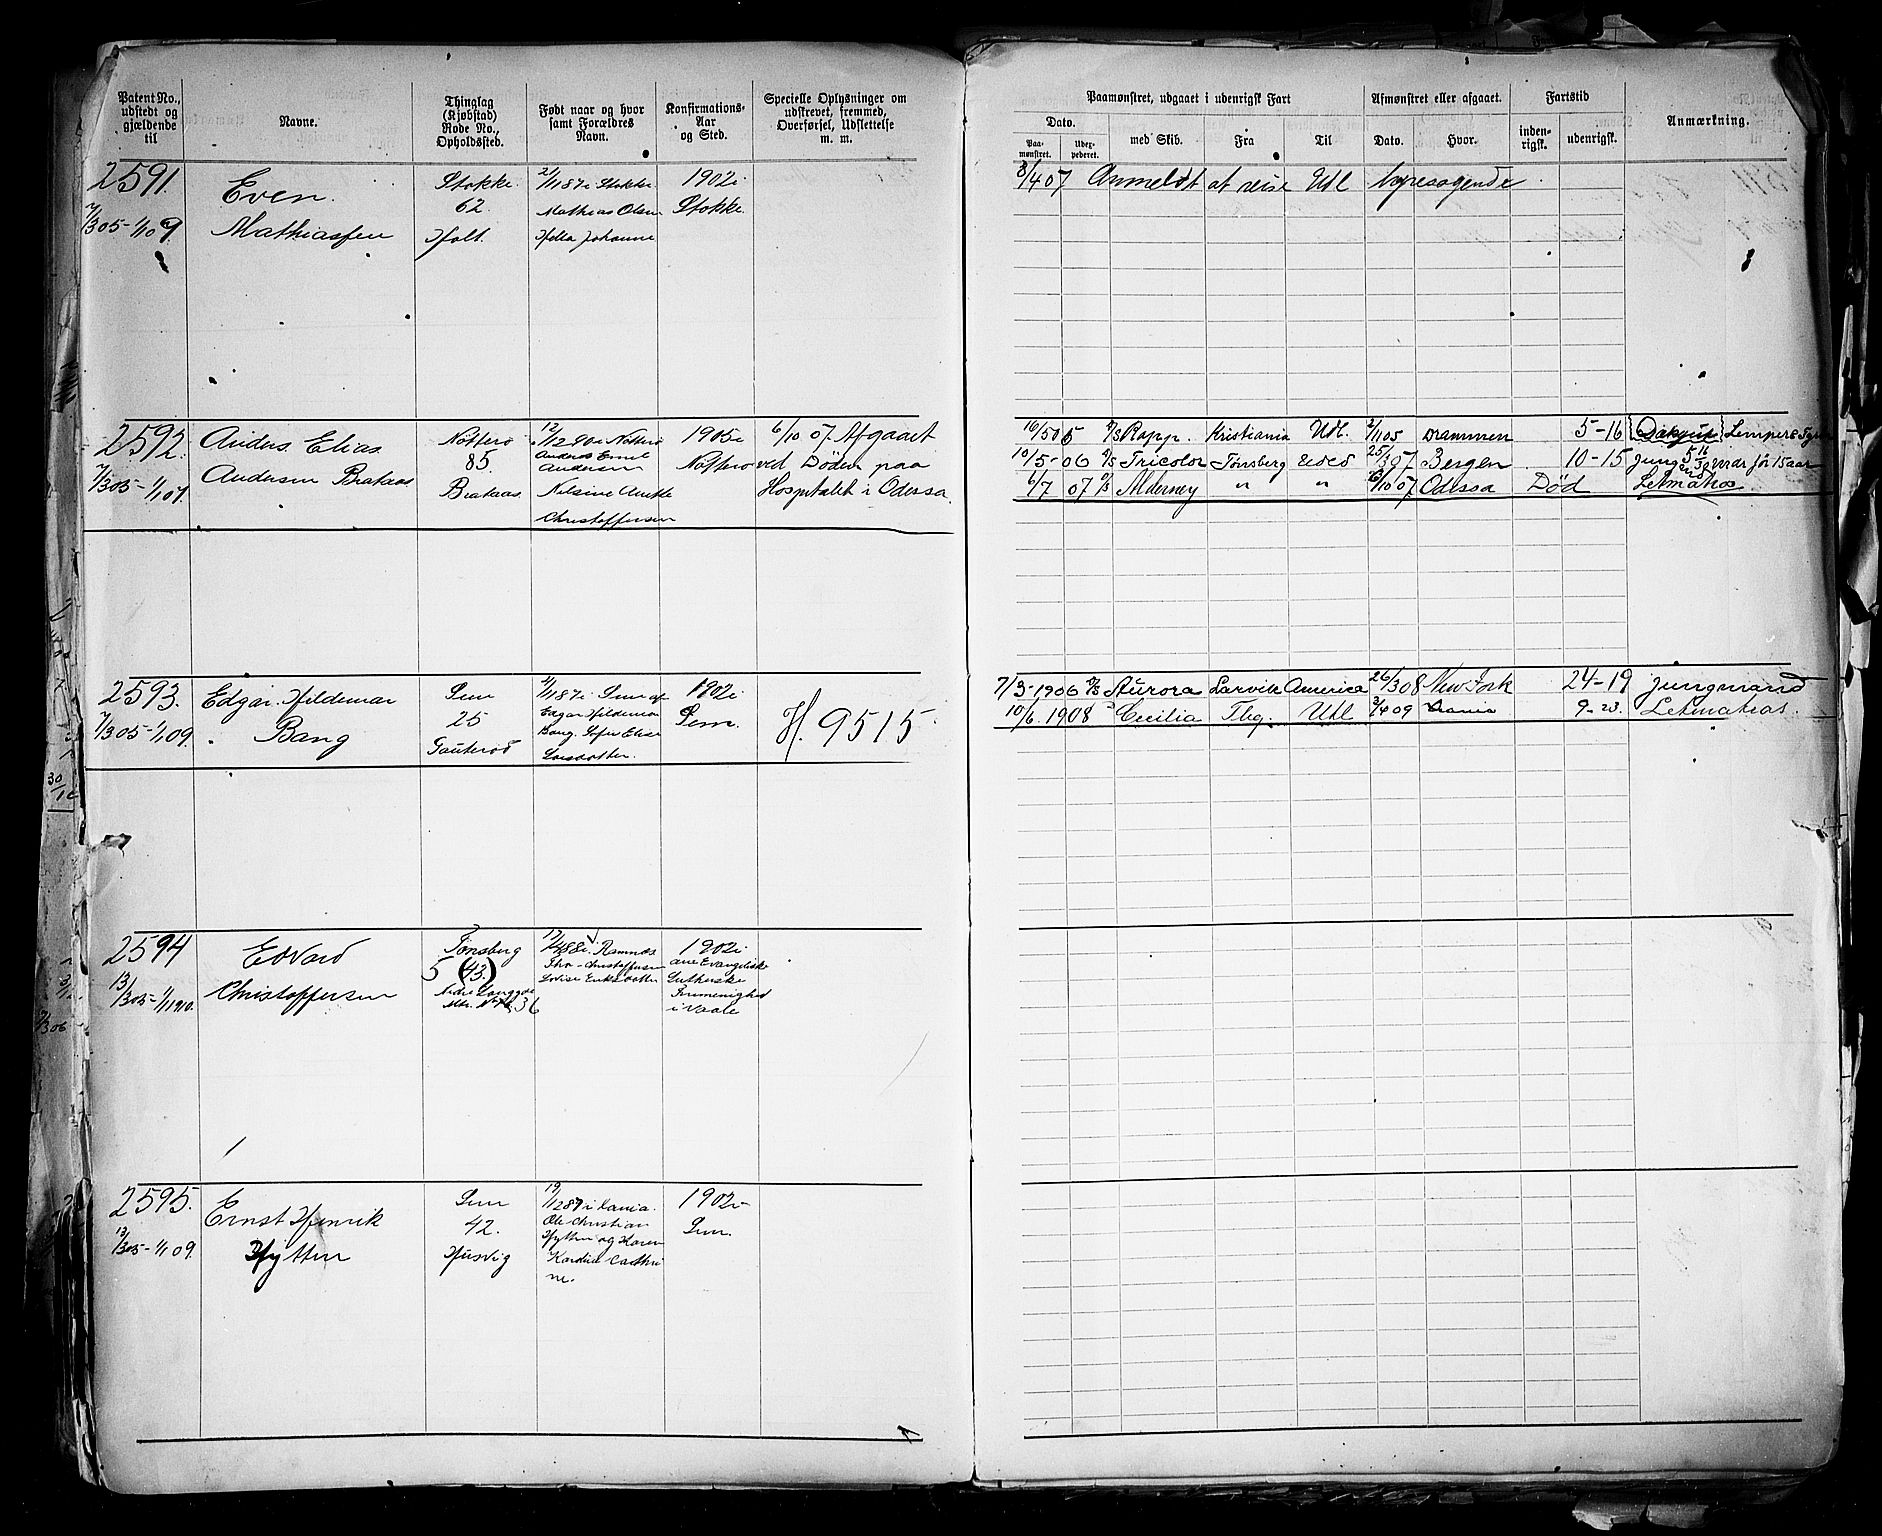 Patent No., udstedt og gjældende til
Navne.
Thinglag (Kjøbstad) Rode No., Opholdssted.
Født naar og hvor samt Forældres Navn.
Konfirmations-Aar og Sted.
Specielle Oplysninger om udskrevet, fremmed, Overførsel, Udslettelse m. m.
Paamønstret, udgaaet i udenrigsk Fart
Afmønstret eller afgaaet.
Fartstid
Anmærkning.
Dato.
med Skib.
Fra
Til
Dato.
Hvor.
inden-rigsk.
udenrigsk.
Paa-mønstret.
2591.
Even
Mathiassen
7/3 05 - 1/1 09
Stokke
62.
Holt.
2/1 187 i Stokke
Mathias Olsen
Helia Johanne
1902 i
Stokke.
8/4 07 Anmeldt at reise Udl
2592.
Anders Elias
Andersen Brataas
7/3 05 - 1/1 07
Nøtterø
85.
Brataas
12/12 90 i Nøtterø
Anders Emil
Andersen
Nilsine Amtte
Christoffersen
1905 i
Nøtterø
6/10 07 Afgaaet
ved Døden paa
Hospitalet i Odessa.
16/5 05 Rapp. Kristiania Udl. 2/11 05 Drammen 5-16
10/5-06 Tricolor Tønsberg Udld 25/3 07 Bergen 10-15
6/7 07 Alderney " " 6/10 07 Odessa Død Letmatros
2593.
Edgar Hildemar
Bang
7/3 05 - 1/1 09.
Sem
25
Gauterød
2/1 187 i Sem af
Edgar Hildemar
Bang. Sofie Elise
Larsdatter.
1902 i
Sem.
H. 9515
7/3-1906 Aurora Larvik America 26/3 08 New York 24-19 Jungmand
10/6 1908 Cecilia Tbg. Udl 2/4 09 9-23. Letmatros.
2594
Edvard
Christoffersen
13/3 05 - 1/1 1910.
Tønsberg
5 (43.)
Nedre Langgade
36
13/4 88 i Ramnæs
Thv. Christoffersen
Lovise Eriksdatter
1902 i
den Evangeliske
Lutherske
Frimenighed
i Vaale
2595.
Ernst Henrik
Hytten
13/3 05 - 1/1 09.
Sem
42.
Husvig
19/12 87 i
Ole Christian
Hytten og Karen
Kardine Cathri
ne.
1902 -
Sem.